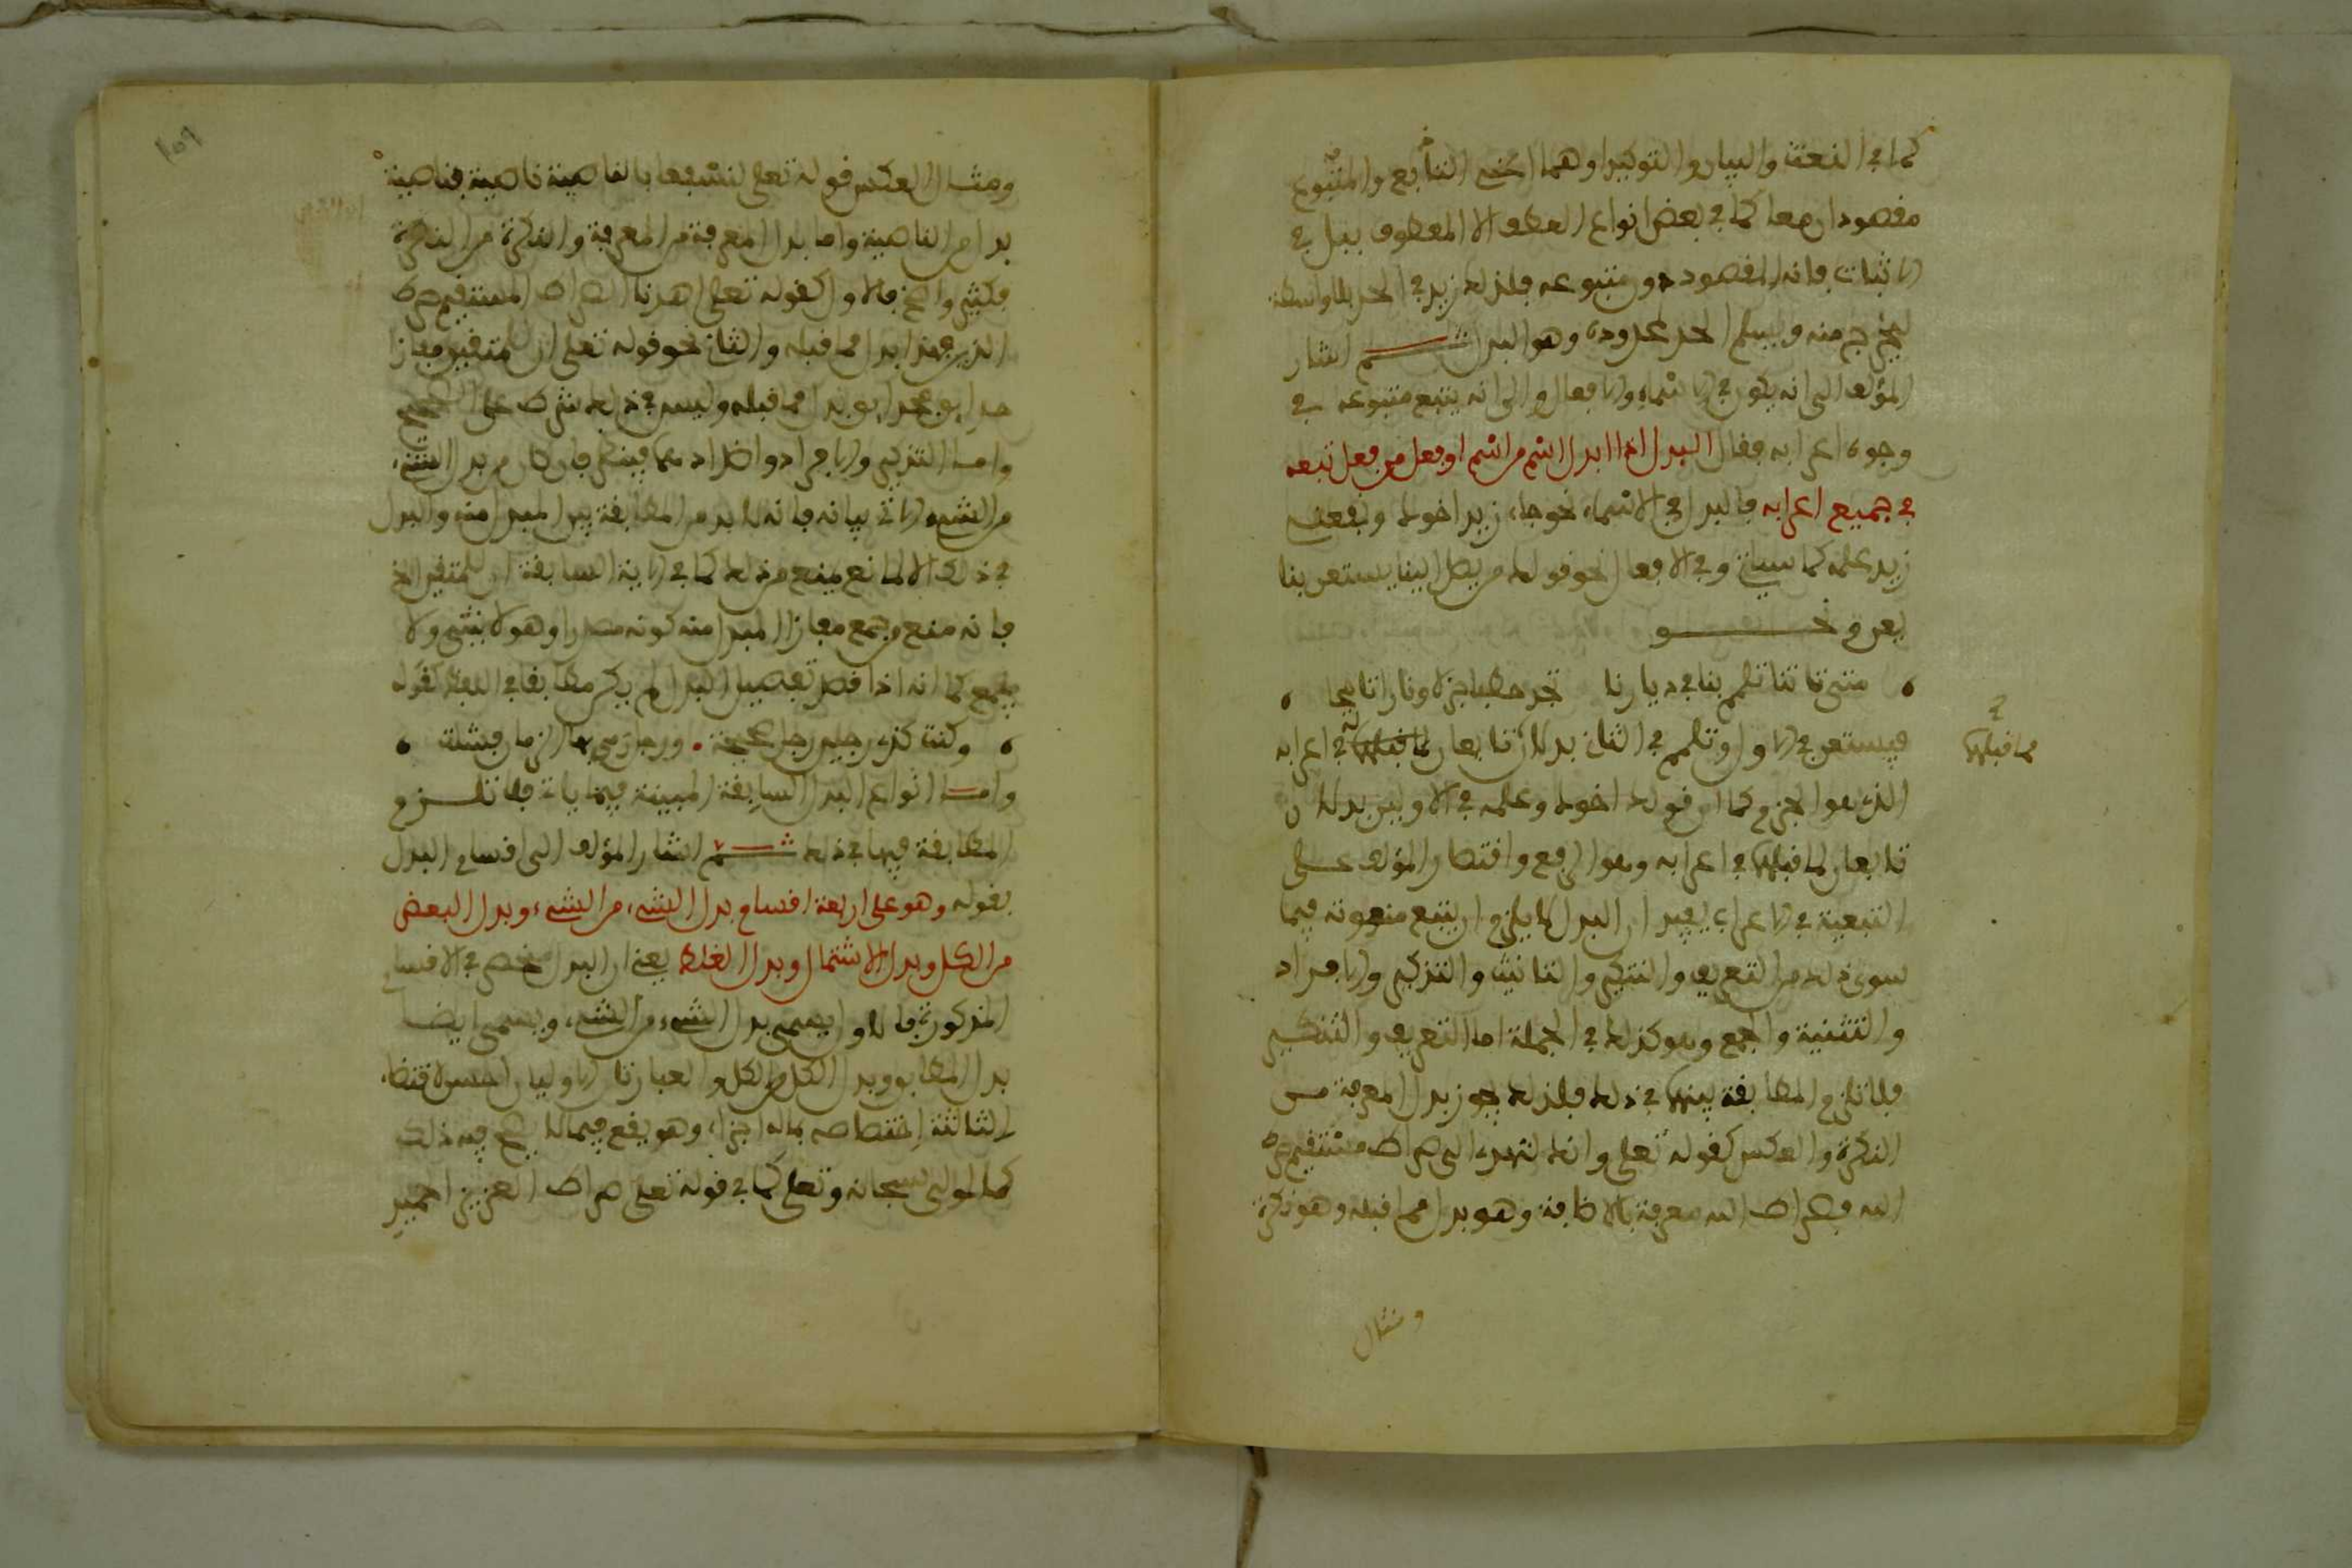 كما في النعت والبيان والتوكيد او هما اعني التابع والمتبوع
مقصودان معا كما في بعض انواع العطف الا المعطوف ببل في
الاثبات فانه المقصود دون متبوعه فلذلك زيد في الحد بلا واسطة
ليخرج منه ويسلم الحد لمحدوده وهو البدل ثم اشار
المؤلف الى انه يكون في الاسماء والافعال والى انه يتبع متبوعه في
وجوه اعرابه فقال البدل اذا ابدل اسم من اسم او فعل من فعل تبعه
في جميع اعرابه فالبدل في الاسماء نحو جاء زيد اخوك ونفعني
زيد علمه كما سياتي وفي الافعال نحو قولك من يصل الينا يستعن بنا
يعن ونحو
متى تاتنا تلمم بنا في ديارنا تجد حطبا جزلا ونارا تاججا
فيستعن في الاول وتلمم في الثاني بدلان تابعان لما قبلهما في اعرابه
مما قبلهما
الذي هو الجزم كما ان قولك اخوك وعلمه في الاولين بدلان
تابعان لما قبلهما في اعرابه وهو الرفع واقتصار المؤلف على
التبعية في الاعراب يفيد ان البدل لا يلزم ان يتبع منعوته فيما
سوى ذلك من التعريف والتنكير والتانيث والتذكير والافراد
والتثنية والجمع وهو كذلك في الجملة اما التعريف والتنكير
فلا تلزم المطابقة بينهما في ذلك فلذلك يجوز بدل المعرفة من
النكرة والعكس كقوله تعلى وانك لتهدي الى صراط مستقيم صراط
الله فصراط الله معرفة بالاضافة وهو بدل مما قبله وهو نكرة
ومثال
١٥٩
ومثال العكس قوله تعلى لنسفعا بالناصية ناصية فناصية
بدل من الناصية واما بدل المعرفة من المعرفة والنكرة من النكرة
فكثير واضح فالاول كقوله تعلى اهدنا الصراط المستقيم صراط
الذين فهذا بدل مما قبله والثاني نحو قوله تعلى ان للمتقين مفازا
حدائق فحدائق بدل مما قبله وليس في ذلك شرط على الصحيح
واما التذكير والافراد واضدادهما فينظر فان كان من بدل الشيء
من الشيء الاتي بيانه فانه لا بد من المطابقة بين المبدل منه والبدل
في ذلك الا لمانع يمنع من ذلك كما في الاية السابقة ان للمتقين الخ
فانه منع من جمع مفازا المبدل منه كونه مصدرا وهو لا يثنى ولا
يجمع كما انه اذا قصد تفصيل البدل لم يكن مطابقا في اللفظ كقوله
وكنت كذي رجلين رجل صحيحة ورجل رمى فيها الزمان فشلت
واما انواع البدل السابقة المبينة فيما ياتي فلا تلزم
المطابقة فيها في ذلك ثم اشار المؤلف الى اقسام البدل
بقوله وهو على اربعة اقسام بدل الشيء من الشيء وبدل البعض
من الكل وبدل الاشتمال وبدل الغلط يعني ان البدل منحصر في الاقسام
المذكورة فالاول يسمى بدل الشيء من الشيء ويسمى ايضا
بدل المطابق وبدل الكل من الكل والعبارتان الاوليان احسن لاقتضاء
الثالثة اختصاصه بما له اجزاء وهو يقع فيما لا يصح فيه ذلك
كالمولى سبحانه وتعلى كما في قوله تعلى صراط العزيز الحميد